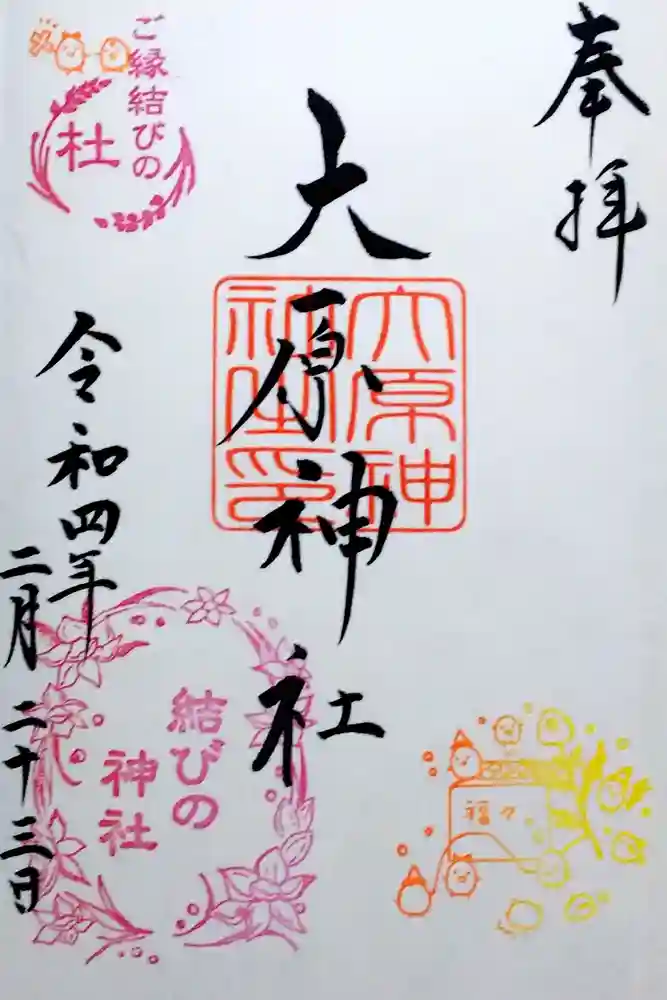 奉拝
大原神社
大原神
社之印
令和四年
二月二十三日
ご縁結びの
杜
結びの
神社
福々